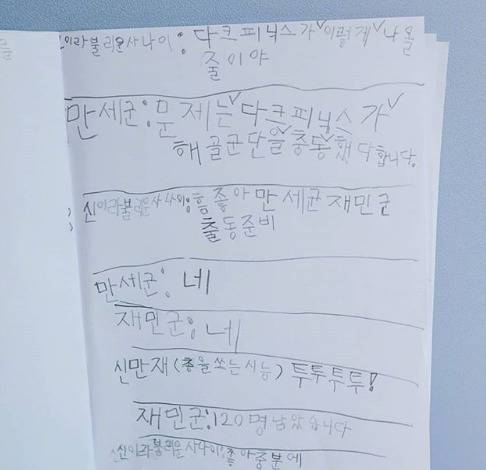 신이라불리운사나이: 다크피닉스가 이렇게 나올
줄이야
만세군: 문제는 다크피닉스가
해골군단을 충동했다합니다.
신이라불리운사나이: 흠 좋아 만세군 재민군
출동준비
만세군: 네
재민군: 네
신만재 (총을 쏘는시늉) 투투투투!
재민군: 120명 남았습니다
신이라불리운사나이: 좋아 중분에